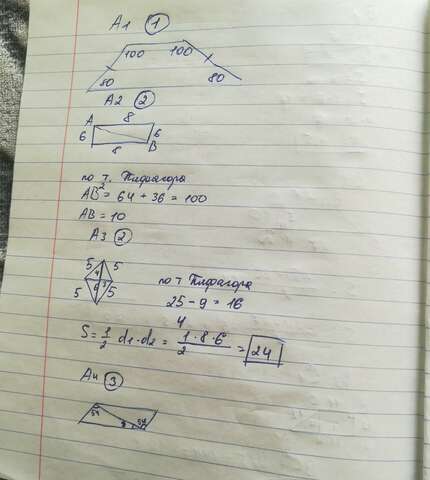 A1 ①
100 100
80 80
A2 ②
A 8
6 6
8 B
по т. Пифагора
AB² = 64 + 36 = 100
AB = 10
A3 ②
5 5
4
6 3
5 5
по т Пифагора
25 - 9 = 16
4
S = 1/2 d1 · d2 = 1·8·6/2 = 24
A4 ③